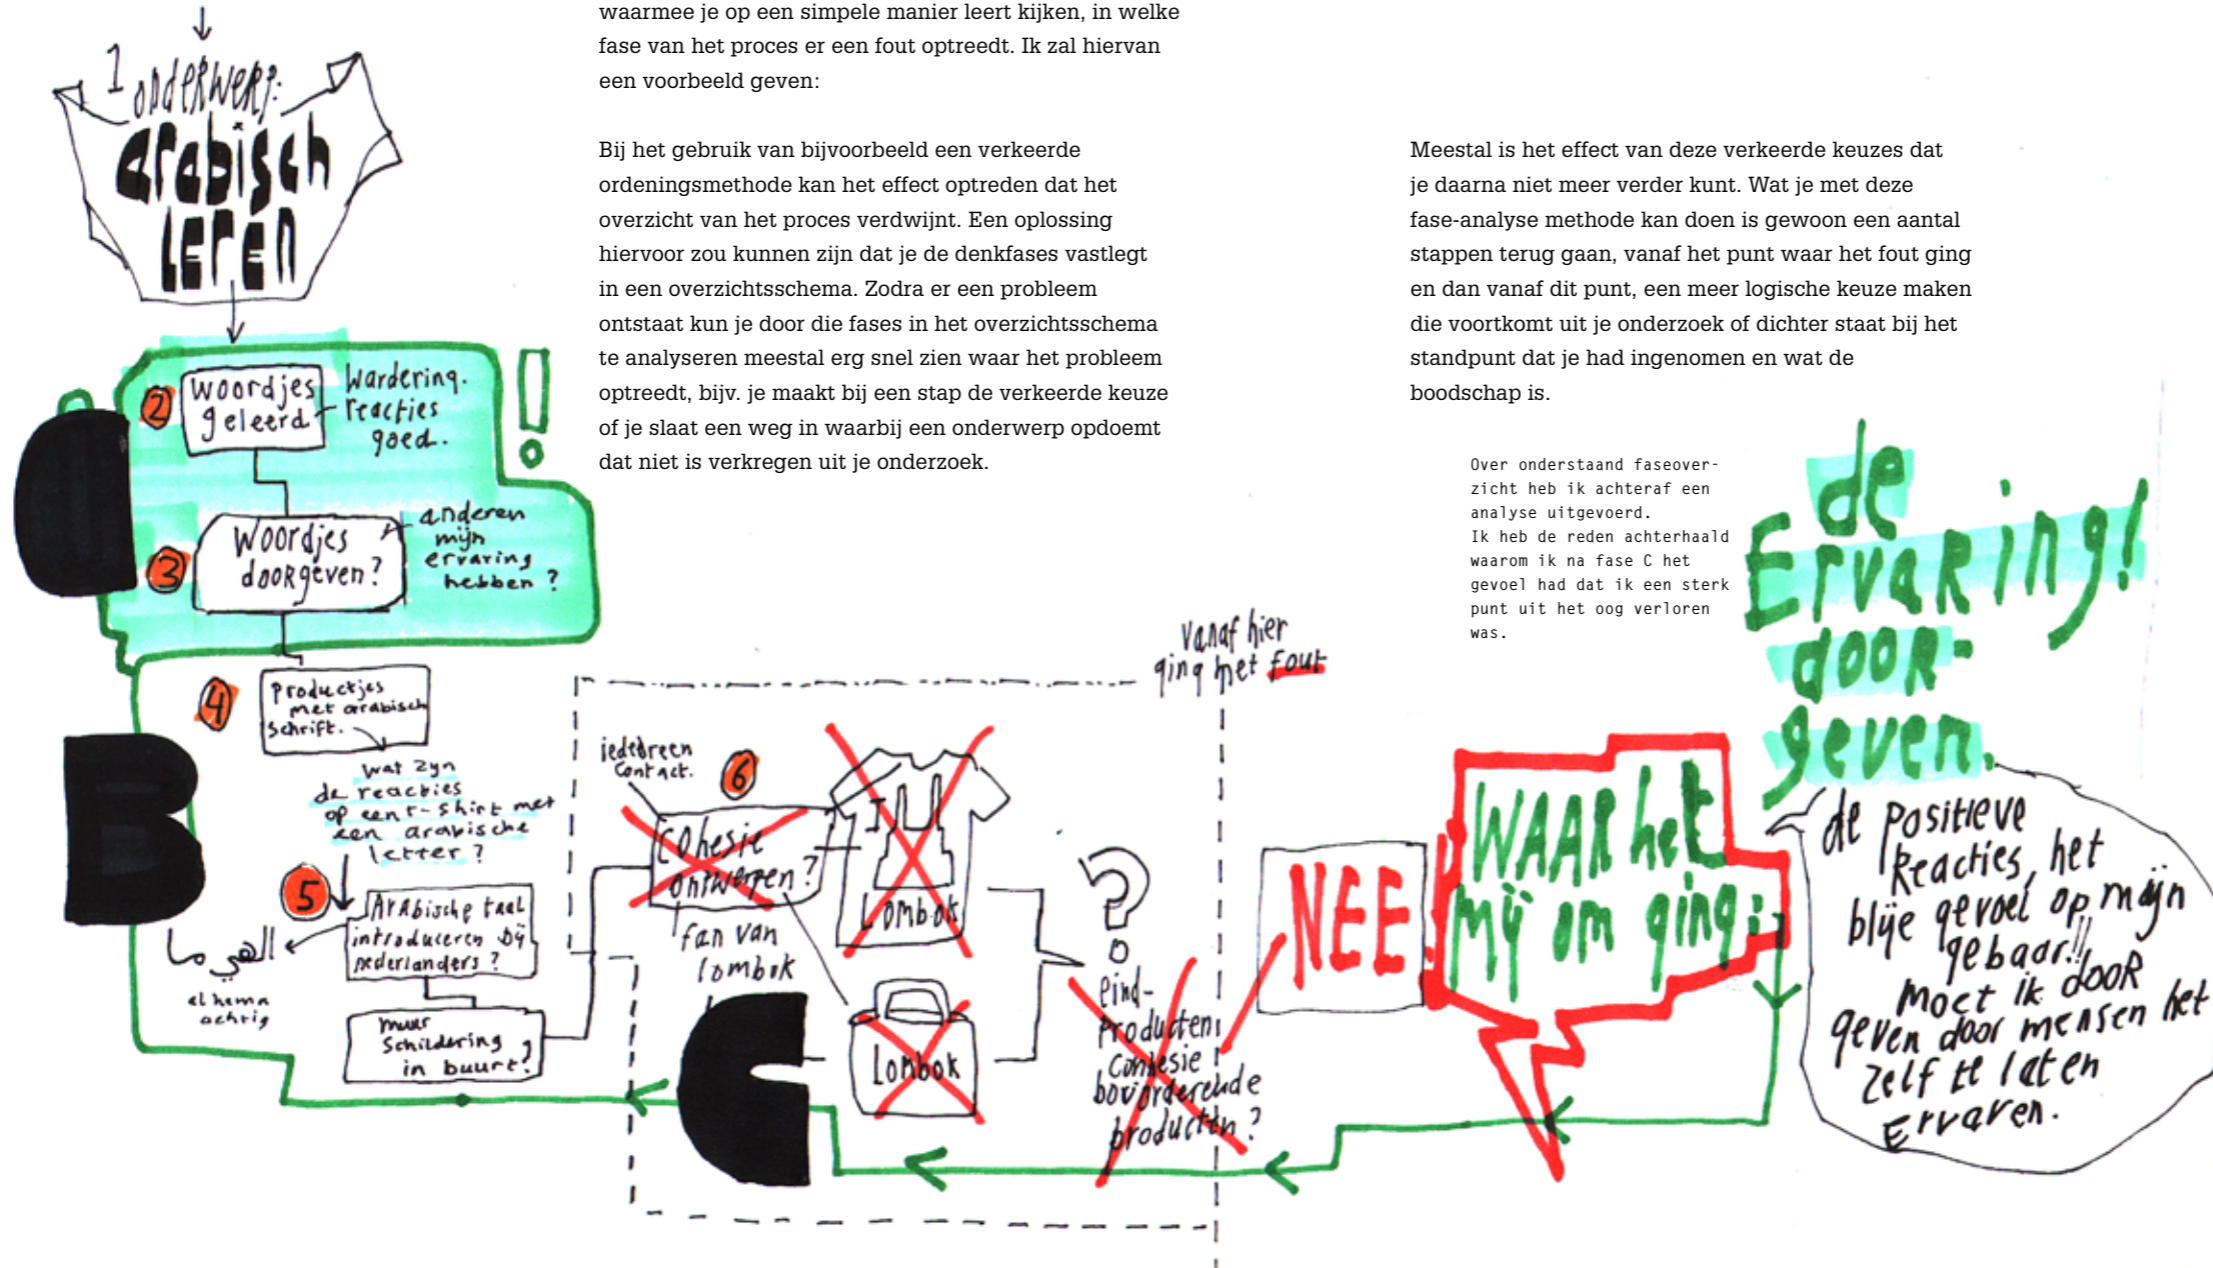 waarmee je op een simpele manier leert kijken, in welke
fase van het proces er een fout optreedt. Ik zal hiervan
een voorbeeld geven:
Bij het gebruik van bijvoorbeeld een verkeerde
ordeningsmethode kan het effect optreden dat het
overzicht van het proces verdwijnt. Een oplossing
hiervoor zou kunnen zijn dat je de denkfases vastlegt
in een overzichtsschema. Zodra er een probleem
ontstaat kun je door die fases in het overzichtsschema
te analyseren meestal erg snel zien waar het probleem
optreedt, bijv. je maakt bij een stap de verkeerde keuze
of je slaat een weg in waarbij een onderwerp opdoemt
dat niet is verkregen uit je onderzoek.
Meestal is het effect van deze verkeerde keuzes dat
je daarna niet meer verder kunt. Wat je met deze
fase-analyse methode kan doen is gewoon een aantal
stappen terug gaan, vanaf het punt waar het fout ging
en dan vanaf dit punt, een meer logische keuze maken
die voortkomt uit je onderzoek of dichter staat bij het
standpunt dat je had ingenomen en wat de
boodschap is.
Over onderstaand faseover-
zicht heb ik achteraf een
analyse uitgevoerd.
Ik heb de reden achterhaald
waarom ik na fase C het
gevoel had dat ik een sterk
punt uit het oog verloren
was.
1 onderwerp:
arabisch
leren
2
woordjes
geleerd
Wardering.
reacties
goed.
!
3
Woordjes
doorgeven?
anderen
mijn
ervaring
hebben?
4
Productjes
met arabisch
schrift.
B
wat zyn
de reacties
op een t-shirt met
een arabische
letter?
5
Arabische taal
introduceren bij
nederlanders?
muur
Schildering
in buurt?
iedereen
Contact.
6
Cohesie
ontwerpen?
fan van
lombok
C
Lombok
Lombok
?
eind-
Producten
bovorderende
producten?
vanaf hier
ging het fout
NEE!
WAAR het
mij om ging:
de
Ervaring!
door-
geven.
de positieve
Reacties, het
blije gevoel op mijn
gebaar!!
moet ik door
geven door mensen het
zelf te laten
Ervaren.